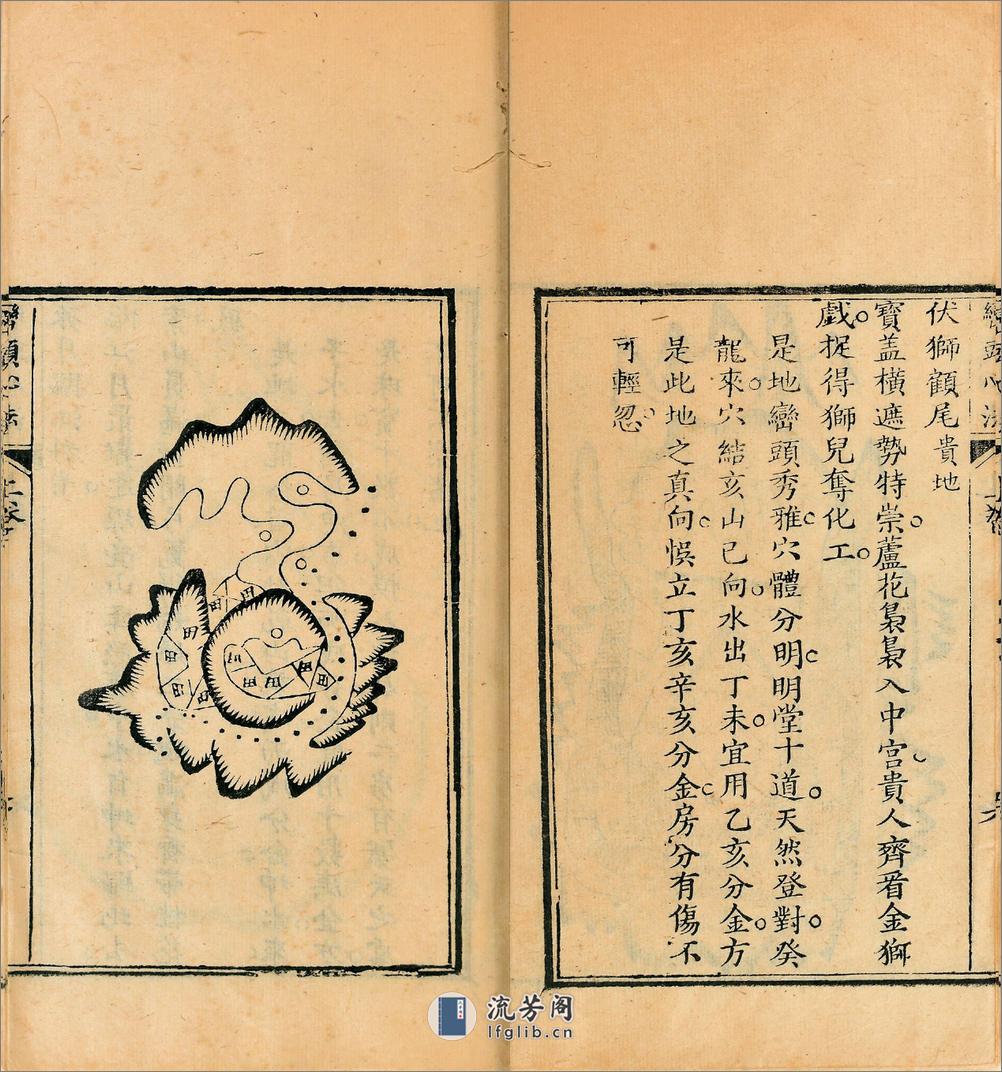 伏獅顧尾貴地
寶盖橫遮勢特崇。蘆花裊裊入中宮。貴人齊看金獅
戲。捉得獅兒奪化工。
是地巒頭秀雅。穴體分明。明堂十道。天然登對。癸
龍來。穴結亥山巳向。水出丁未。宜用乙亥分金。方
是此地之真向。悞立丁亥辛亥分金。房分有傷。不
可輕忽。
巒頭心法
上卷
田
田
田
田
田
田
田
田
田
流芳阁
lfglib.cn